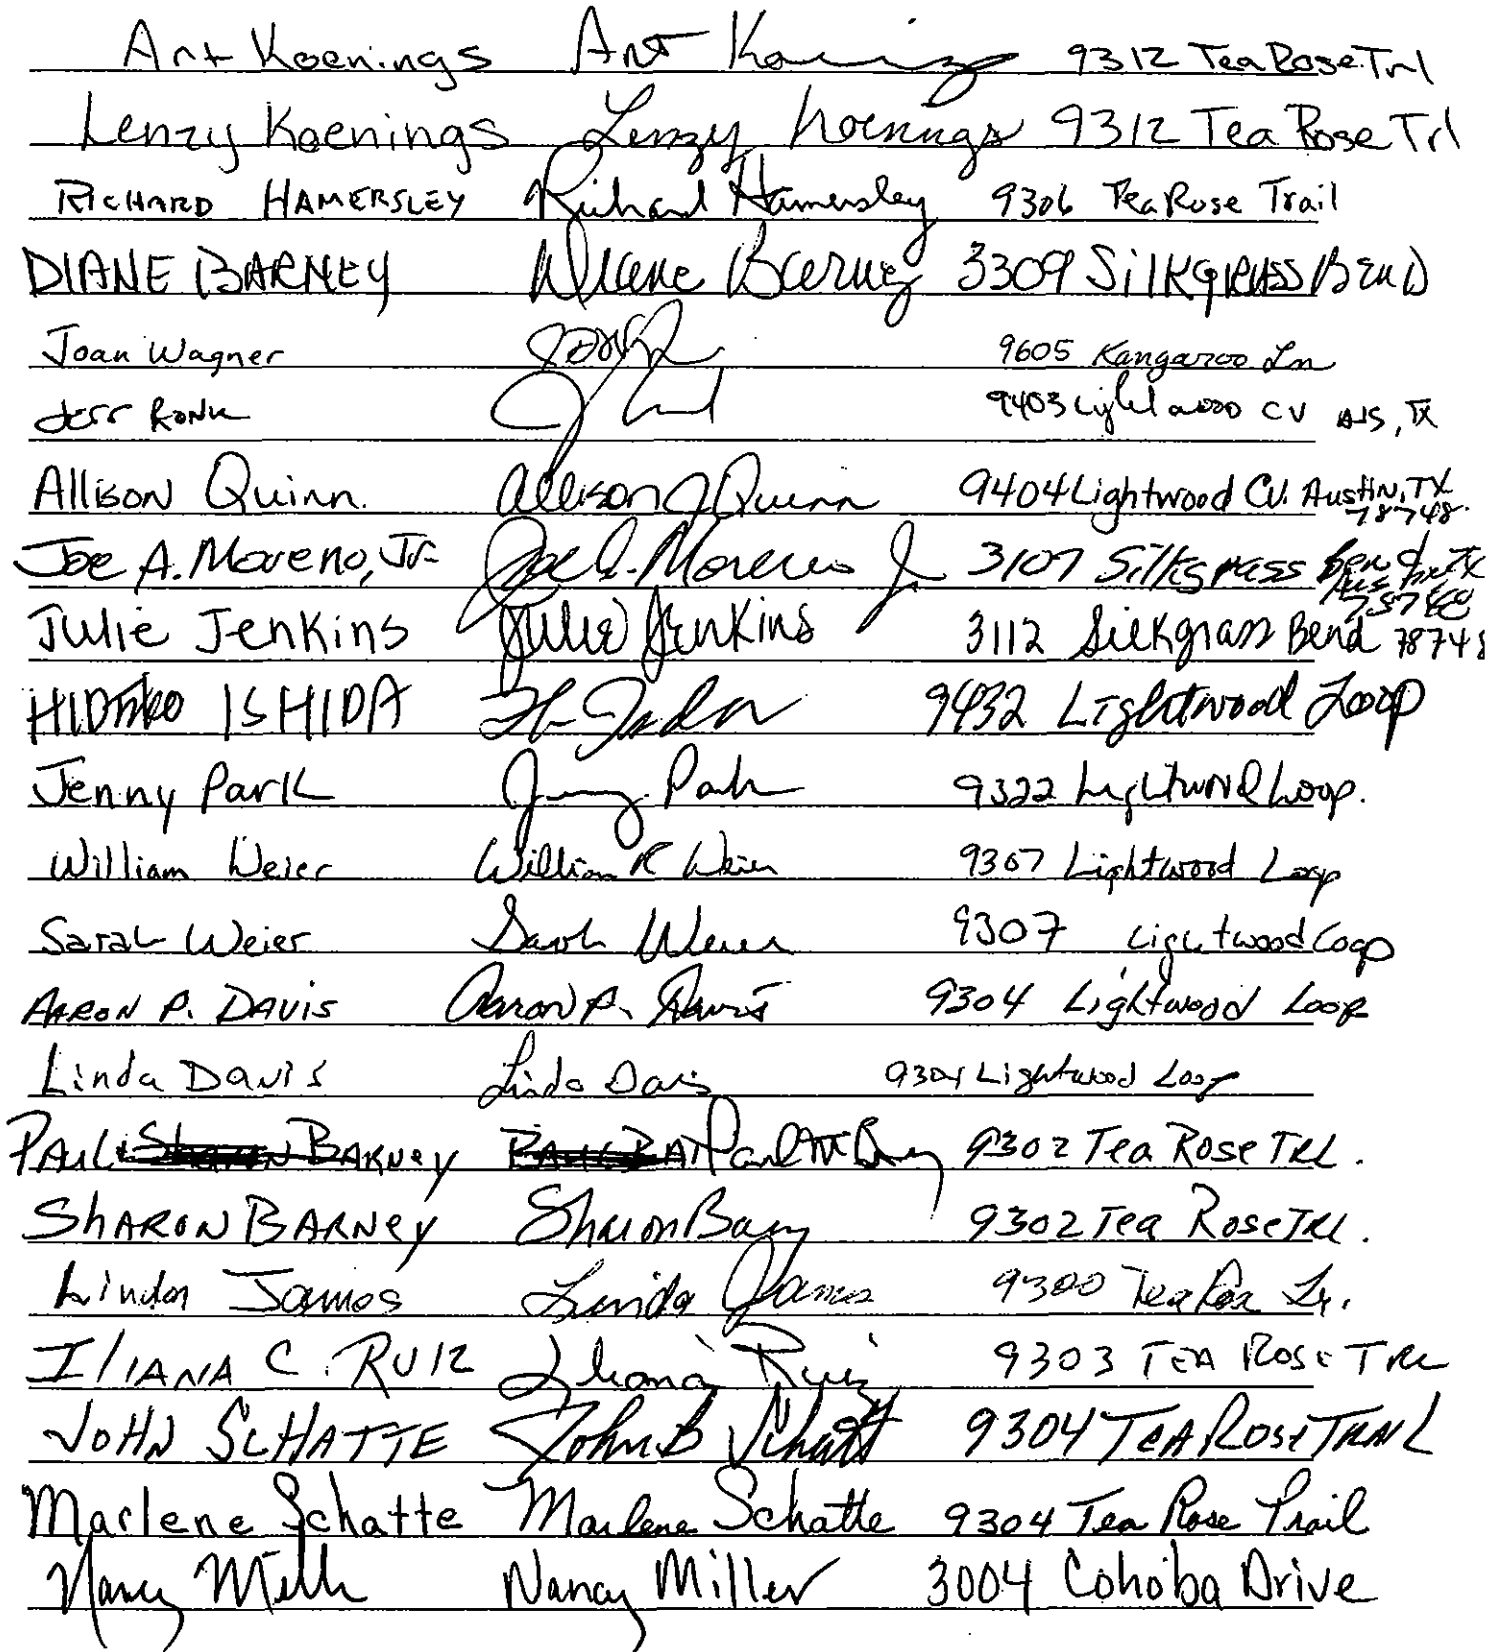 Art Koenings Art Koenings 9312 Tea Rose Trl
Lenzy Koenings Lenzy Koenings 9312 Tea Rose Trl
RICHARD HAMERSLEY Richard Hamersley 9306 Tea Rose Trail
DIANE BARNEY Diane Barney 3309 Silkgrass Bend
Joan Wagner 9605 Kangaroo Ln
Jeff Ronk 9403 Lightwood CV AUS, TX
Allison Quinn Allison J Quinn 9404 Lightwood CV. Austin, TX 78748
Joe A. Moreno, Jr. Joe A. Moreno Jr 3107 Silkgrass Bend Austin TX 78748
Julie Jenkins Julie Jenkins 3112 Silkgrass Bend 78748
ISHIDA 9432 Lightwood Loop
Jenny Park Jenny Park 9322 Lightwood Loop.
William Weier William R Weier 9307 Lightwood Loop
Sarah Weier Sarah Weier 9307 Lightwood Loop
AARON P. DAVIS Aaron P. Davis 9304 Lightwood Loop
Linda Davis Linda Davis 9304 Lightwood Loop
PAUL BARNEY Paul M Barney 9302 Tea Rose TRL.
SHARON BARNEY Sharon Barney 9302 Tea Rose TRL.
Linda James Linda James 9300 Tea Rose Tr.
ILIANA C. RUIZ Iliana Ruiz 9303 TEA ROSE TRL
JOHN SCHATTE John B Schatte 9304 TEA ROSE TRAIL
Marlene Schatte Marlene Schatte 9304 Tea Rose Trail
Nancy Miller Nancy Miller 3004 Cohoba Drive